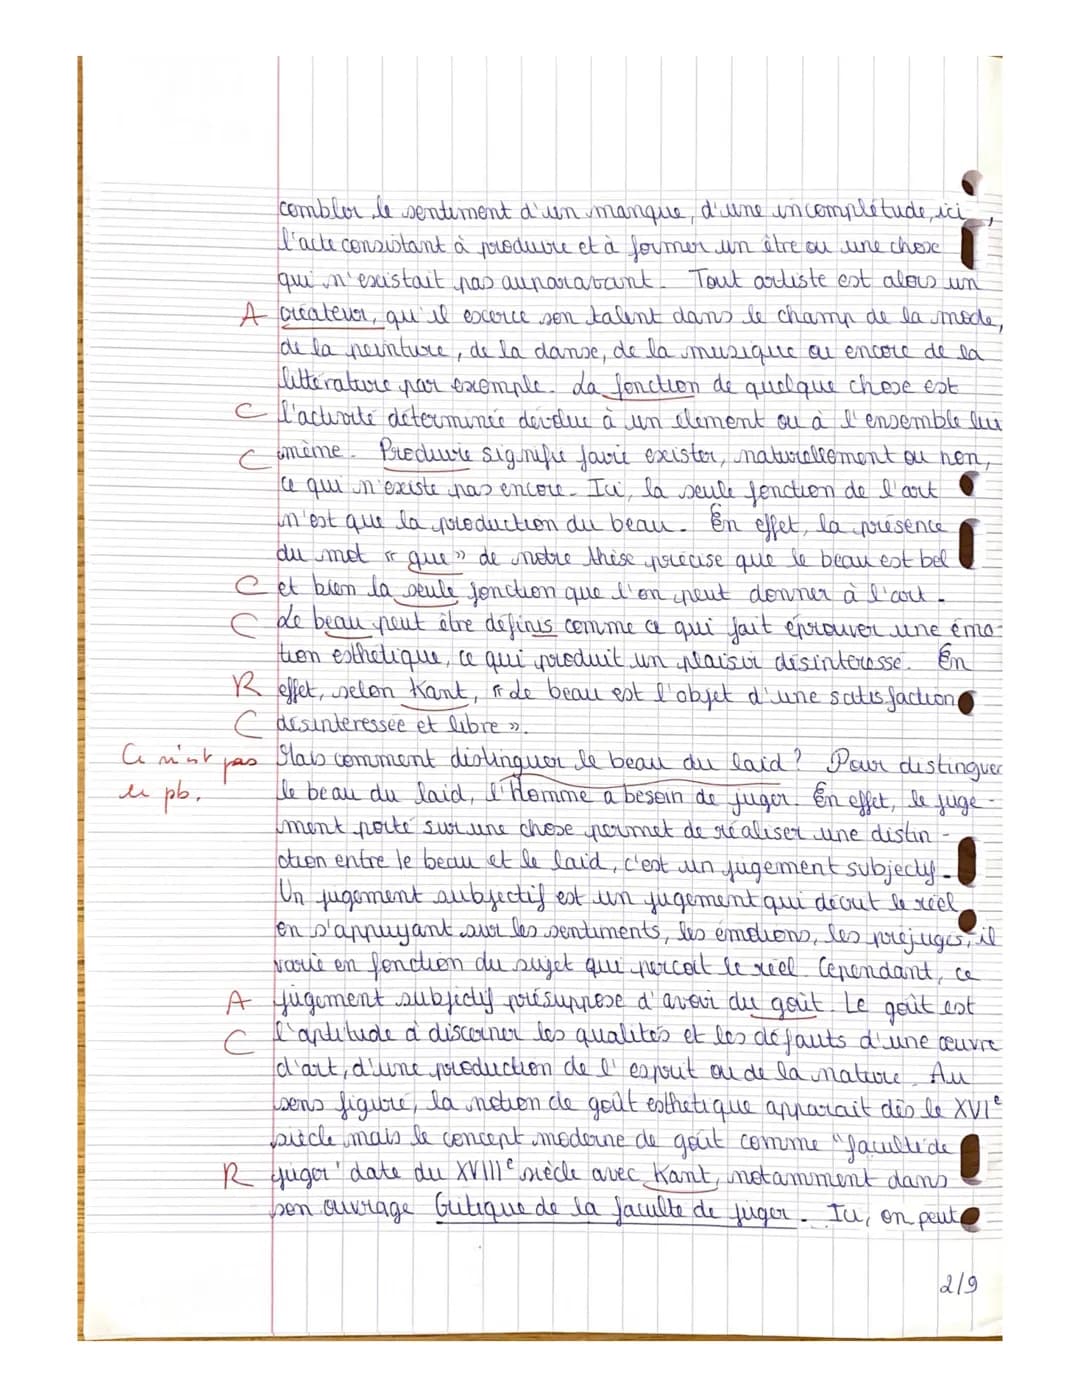 combler le sentiment d'un manque, d'une incomplétude, ici,
l'acte consistant à produire et à former un être ou une chose
qui n'existait pas auparavant. Tout artiste est alors un
A créateur, qu'il excerce son talent dans le champ de la mode,
de la peinture, de la danse, de la musique ou encore de la
littérature par exemple. La fonction de quelque chose est
C l'activité déterminée dévolue à un élement ou à l'ensemble lui
C même. Produire signifie faire exister, naturellement ou non,
ce qui n'existe pas encore. Ici, la seule fonction de l'art
n'est que la production du beau. En effet, la présence
du mot « que » de notre thèse précise que le beau est bel
C et bien la seule fonction que l'on peut donner à l'art.
C Le beau peut être définis comme ce qui fait éprouver une émo-
tion esthétique, ce qui produit un plaisir désintéressé. En
R effet, selon Kant, « le beau est l'objet d'une satisfaction
C désintéressée et libre ».
Ce n'est pas Mais comment distinguer le beau du laid ? Pour distinguer
le pb. le beau du laid, l'Homme a besoin de juger. En effet, le juge-
ment porté sur une chose permet de réaliser une distin-
ction entre le beau et le laid, c'est un jugement subjectif.
Un jugement subjectif est un jugement qui décrit le réel
en s'appuyant sur les sentiments, les émotions, les préjugés, il
varie en fonction du sujet qui perçoit le réel. Cependant, ce
A jugement subjectif présuppose d'avoir du goût. Le goût est
C l'aptitude à discerner les qualités et les défauts d'une œuvre
d'art, d'une production de l'esprit ou de la nature. Au
sens figuré, la notion de goût esthétique apparaît dès le XVIe
siècle mais le concept moderne de goût comme "faculté de
R juger" date du XVIIIe siècle avec Kant, notamment dans
son ouvrage Critique de la faculté de juger. Ici, on peut
2/9